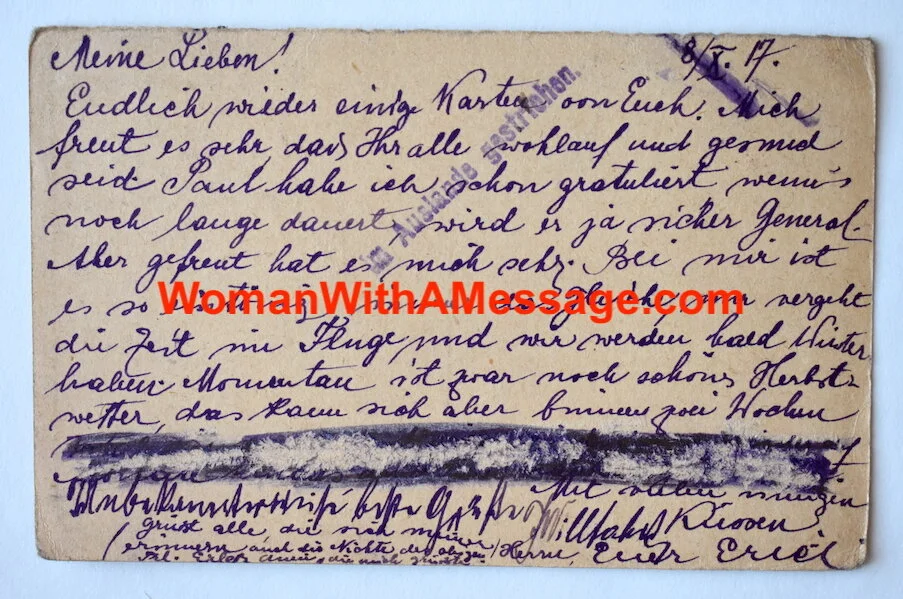 Meine Lieben! 8/X. 17.
Endlich wieder einige Karten von Euch. Mich
freut es sehr dass Ihr alle wohlauf und gesund
seid. Paul habe ich schon gratuliert wenn's
noch lange dauert, wird er ja sicher General.
Aber gefreut hat es mich sehr. Bei mir ist
es so immer das gleiche, nur vergeht
die Zeit im Fluge und wir werden bald Winter
haben. Momentan ist zwar noch schönes Herbst-
wetter, das kann sich aber binnen zwei Wochen
Mit vielen innigen
Unbekannterweise beste Grüße Küssen
grüsst alle, die sich meiner
erinnern auch die Nichte des obigen Herrn, Euer Erich
im Auslande gestrichen.
WomanWithAMessage.com